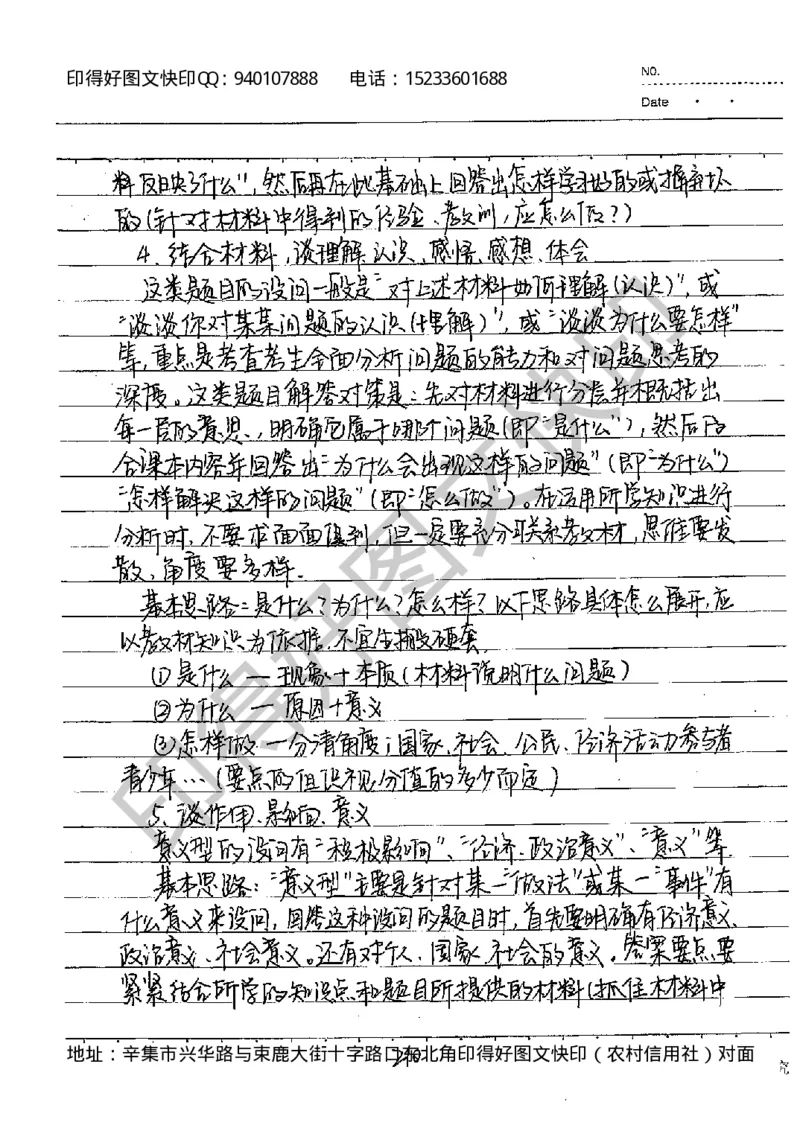 印得好图文快印QQ：940107888 电话：15233601688
NO.
Date
料反映了什么"，然后再在此基础上回答出怎样学习好的或摒弃坏
的(针对材料中得到的经验、教训，应怎么做？)
4、结合材料，谈理解、认识、感悟、感想、体会
这类题目的设问一般是"对上述材料如何理解(认识)"，或
"谈谈你对某某问题的认识(理解)"，或"谈谈为什么要怎样"
等，重点是考查考生全面分析问题的能力和对问题思考的
深度。这类题目解答对策是：先对材料进行分层并概括出
每一层的意思，明确它属于哪个问题(即"是什么")，然后结
合课本内容并回答出"为什么会出现这样的问题"(即"为什么")
"怎样解决这样的问题"(即"怎么做")。在运用所学知识进行
分析时，不要求面面俱到，但一定要充分联系教材，思维要发
散，角度要多样。
基本思路：是什么？为什么？怎么样？以下思路具体怎么展开，应
以教材知识为依据，不宜生搬硬套
①是什么 — 现象+本质(材料说明什么问题)
②为什么 — 原因+意义
③怎样做 — 分清角度；国家、社会、公民、经济活动参与者
青少年…(要点的但设视分值的多少而定)
5、谈作用、影响、意义
意义型的设问有"积极影响"、"经济、政治意义"、"意义"等
基本思路："意义型"主要是针对某一"做法"或某一"事件"有
什么意义来设问，回答这种设问的题目时，首先要明确有经济意义、
政治意义、社会意义。还有对个人、国家、社会的意义。答案要点要
紧紧结合所学的知识点和题目所提供的材料(抓住材料中
地址：辛集市兴华路与束鹿大街十字路口东北角印得好图文快印（农村信用社）对面
究
印得好图文快印